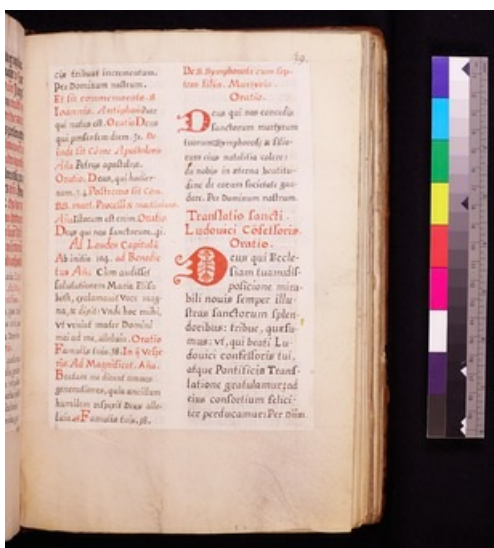 89.
cis tribuat incrementum.
Per Dominum nostrum.
Et fit commemoratio. S.
Ioannis. Antiphona
qui natus est. Oratio Deus
qui præsentem diem. 52. De-
inde fit Cõme. Apostolorũ
Aña Petrus apostolus.
Oratio. Deus, qui hodier-
nam. 74. Postremo fit Com.
SS. mart. Processi & martiniani.
Aña Istorum est enim. Oratio
Deus qui nos sanctorum. 41.
Ad Laudes Capitulũ
Ab initio 104. ad Benedic-
tus Aña. Cum audisset
salutationem Mariæ Elisa-
beth, exclamavit voce mag-
na, & dixit: Unde hoc mihi,
ut veniat mater Domini
mei ad me, alleluia. Oratio
Famulis tuis. 38. In ij. Vespe-
ris. Ad Magnificat. Aña.
Beatam me dicent omnes
generationes, quia ancillam
humilem respexit Deus alle-
luia. Famulis tuis. 38.
De S. Symphorosa cum sep-
tem filiis. Martyris.
Oratio.
Deus qui nos concedis
sanctorum martyrum
tuorum Symphorosæ & filio-
rum eius natalitia colere:
da nobis in æterna beatitu-
dine de eorum societate gau-
dere. Per Dominum nostrum.
Translatio sancti
Ludovici Cõfessoris.
Oratio.
Deus qui Eccle-
siam tuam dis-
positione mira-
bili novis semper illu-
stras sanctorum splen-
doribus: tribue, quæsu-
mus: ut, qui beati Lu-
dovici confessoris tui,
atque Pontificis Trans-
latione gratulamur: ad
eius consortium felici-
ter perducamur: Per Dñm